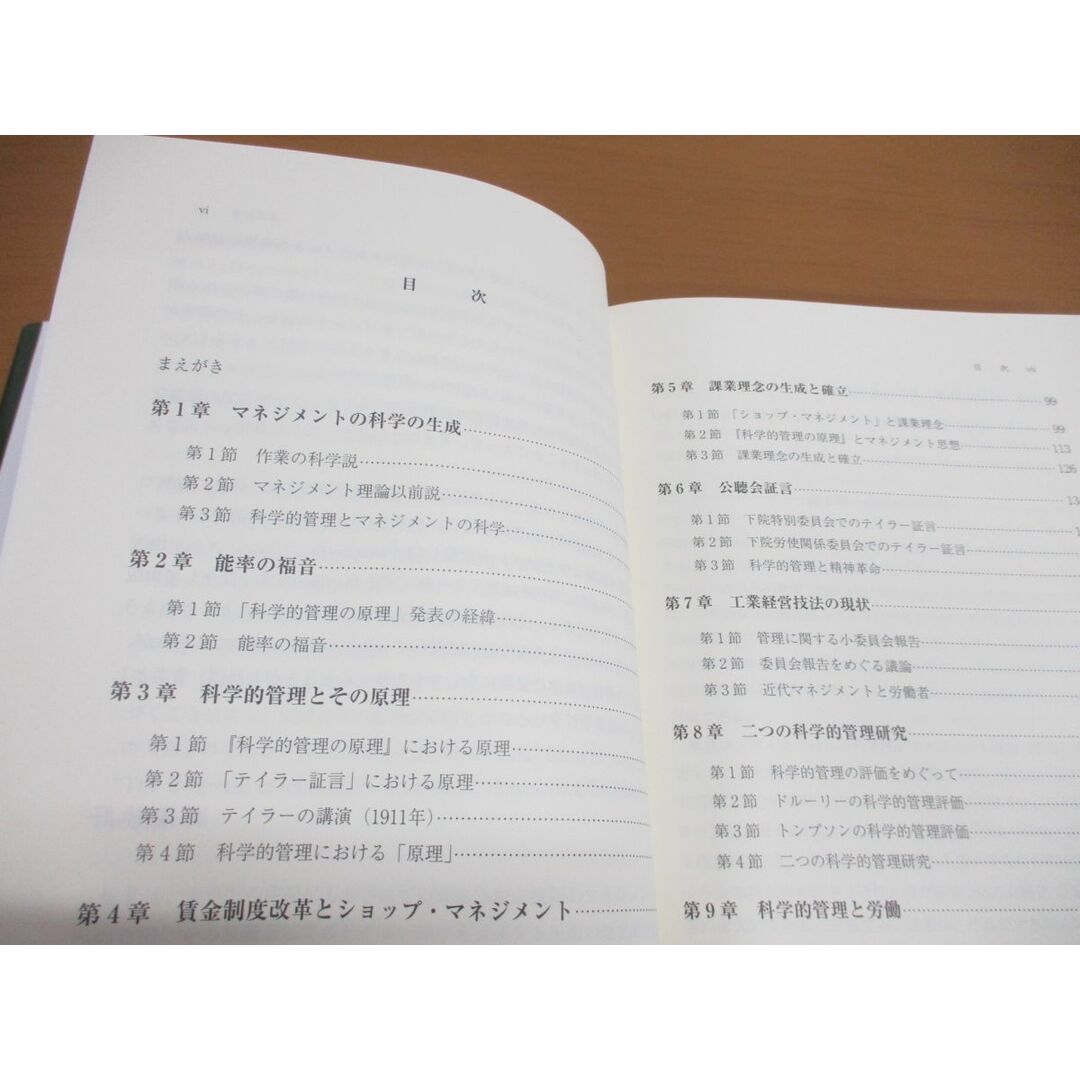 vi
目 次
まえがき
第1章 マネジメントの科学の生成
第1節 作業の科学説
第2節 マネジメント理論以前説
第3節 科学的管理とマネジメントの科学
第2章 能率の福音
第1節 「科学的管理の原理」発表の経緯
第2節 能率の福音
第3章 科学的管理とその原理
第1節 『科学的管理の原理』における原理
第2節 「テイラー証言」における原理
第3節 テイラーの講演(1911年)
第4節 科学的管理における「原理」
第4章 賃金制度改革とショップ・マネジメント
目 次 vii
第5章 課業理念の生成と確立 99
第1節 「ショップ・マネジメント」と課業理念 99
第2節 『科学的管理の原理』とマネジメント思想 113
第3節 課業理念の生成と確立 126
第6章 公聴会証言 13
第1節 下院特別委員会でのテイラー証言 1
第2節 下院労使関係委員会でのテイラー証言
第3節 科学的管理と精神革命
第7章 工業経営技法の現状
第1節 管理に関する小委員会報告
第2節 委員会報告をめぐる議論
第3節 近代マネジメントと労働者
第8章 二つの科学的管理研究
第1節 科学的管理の評価をめぐって
第2節 ドルーリーの科学的管理評価
第3節 トンプソンの科学的管理評価
第4節 二つの科学的管理研究
第9章 科学的管理と労働